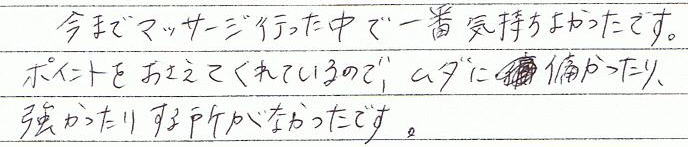 今までマッサージ行った中で一番気持ちよかったです。
ポイントをおさえてくれているので、ムダに痛かったり、
強かったりする所がなかったです。